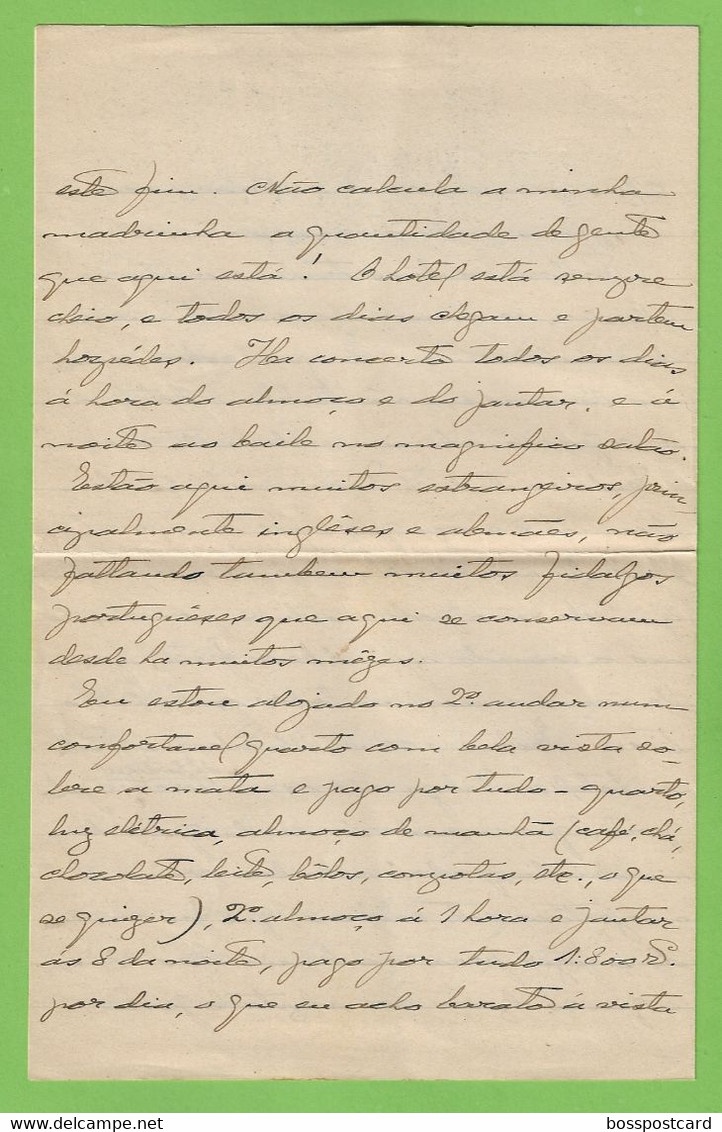 este fim. Não calcula a minha
madrinha a quantidade de gente
que aqui está! O hotel está sempre
cheio, e todos os dias chegam e partem
hospédes. Ha concerto todos os dias
á hora do almoço e do jantar, e á
noite ao baile no magnifico salão.
Estão aqui muitos estrangeiros, prin-
cipalmente inglêses e alemães, não
faltando tambem muitos fidalgos
portuguêses que aqui se conservam
desde ha muitos mêzes.
Eu estou alojado no 2º. andar num
confortavel quarto com bela vista so-
bre a mata e pago por tudo - quarto,
luz elétrica, almoço de manhã (café, chá,
chocolate, leite, bôlos, compotas, etc., o que
se quizer), 2º. almoço á 1 hora e jantar
ás 8 da noite, pago por tudo 1:800rs.
por dia, o que eu acho barato á vista
www.delcampe.net
bosspostcard